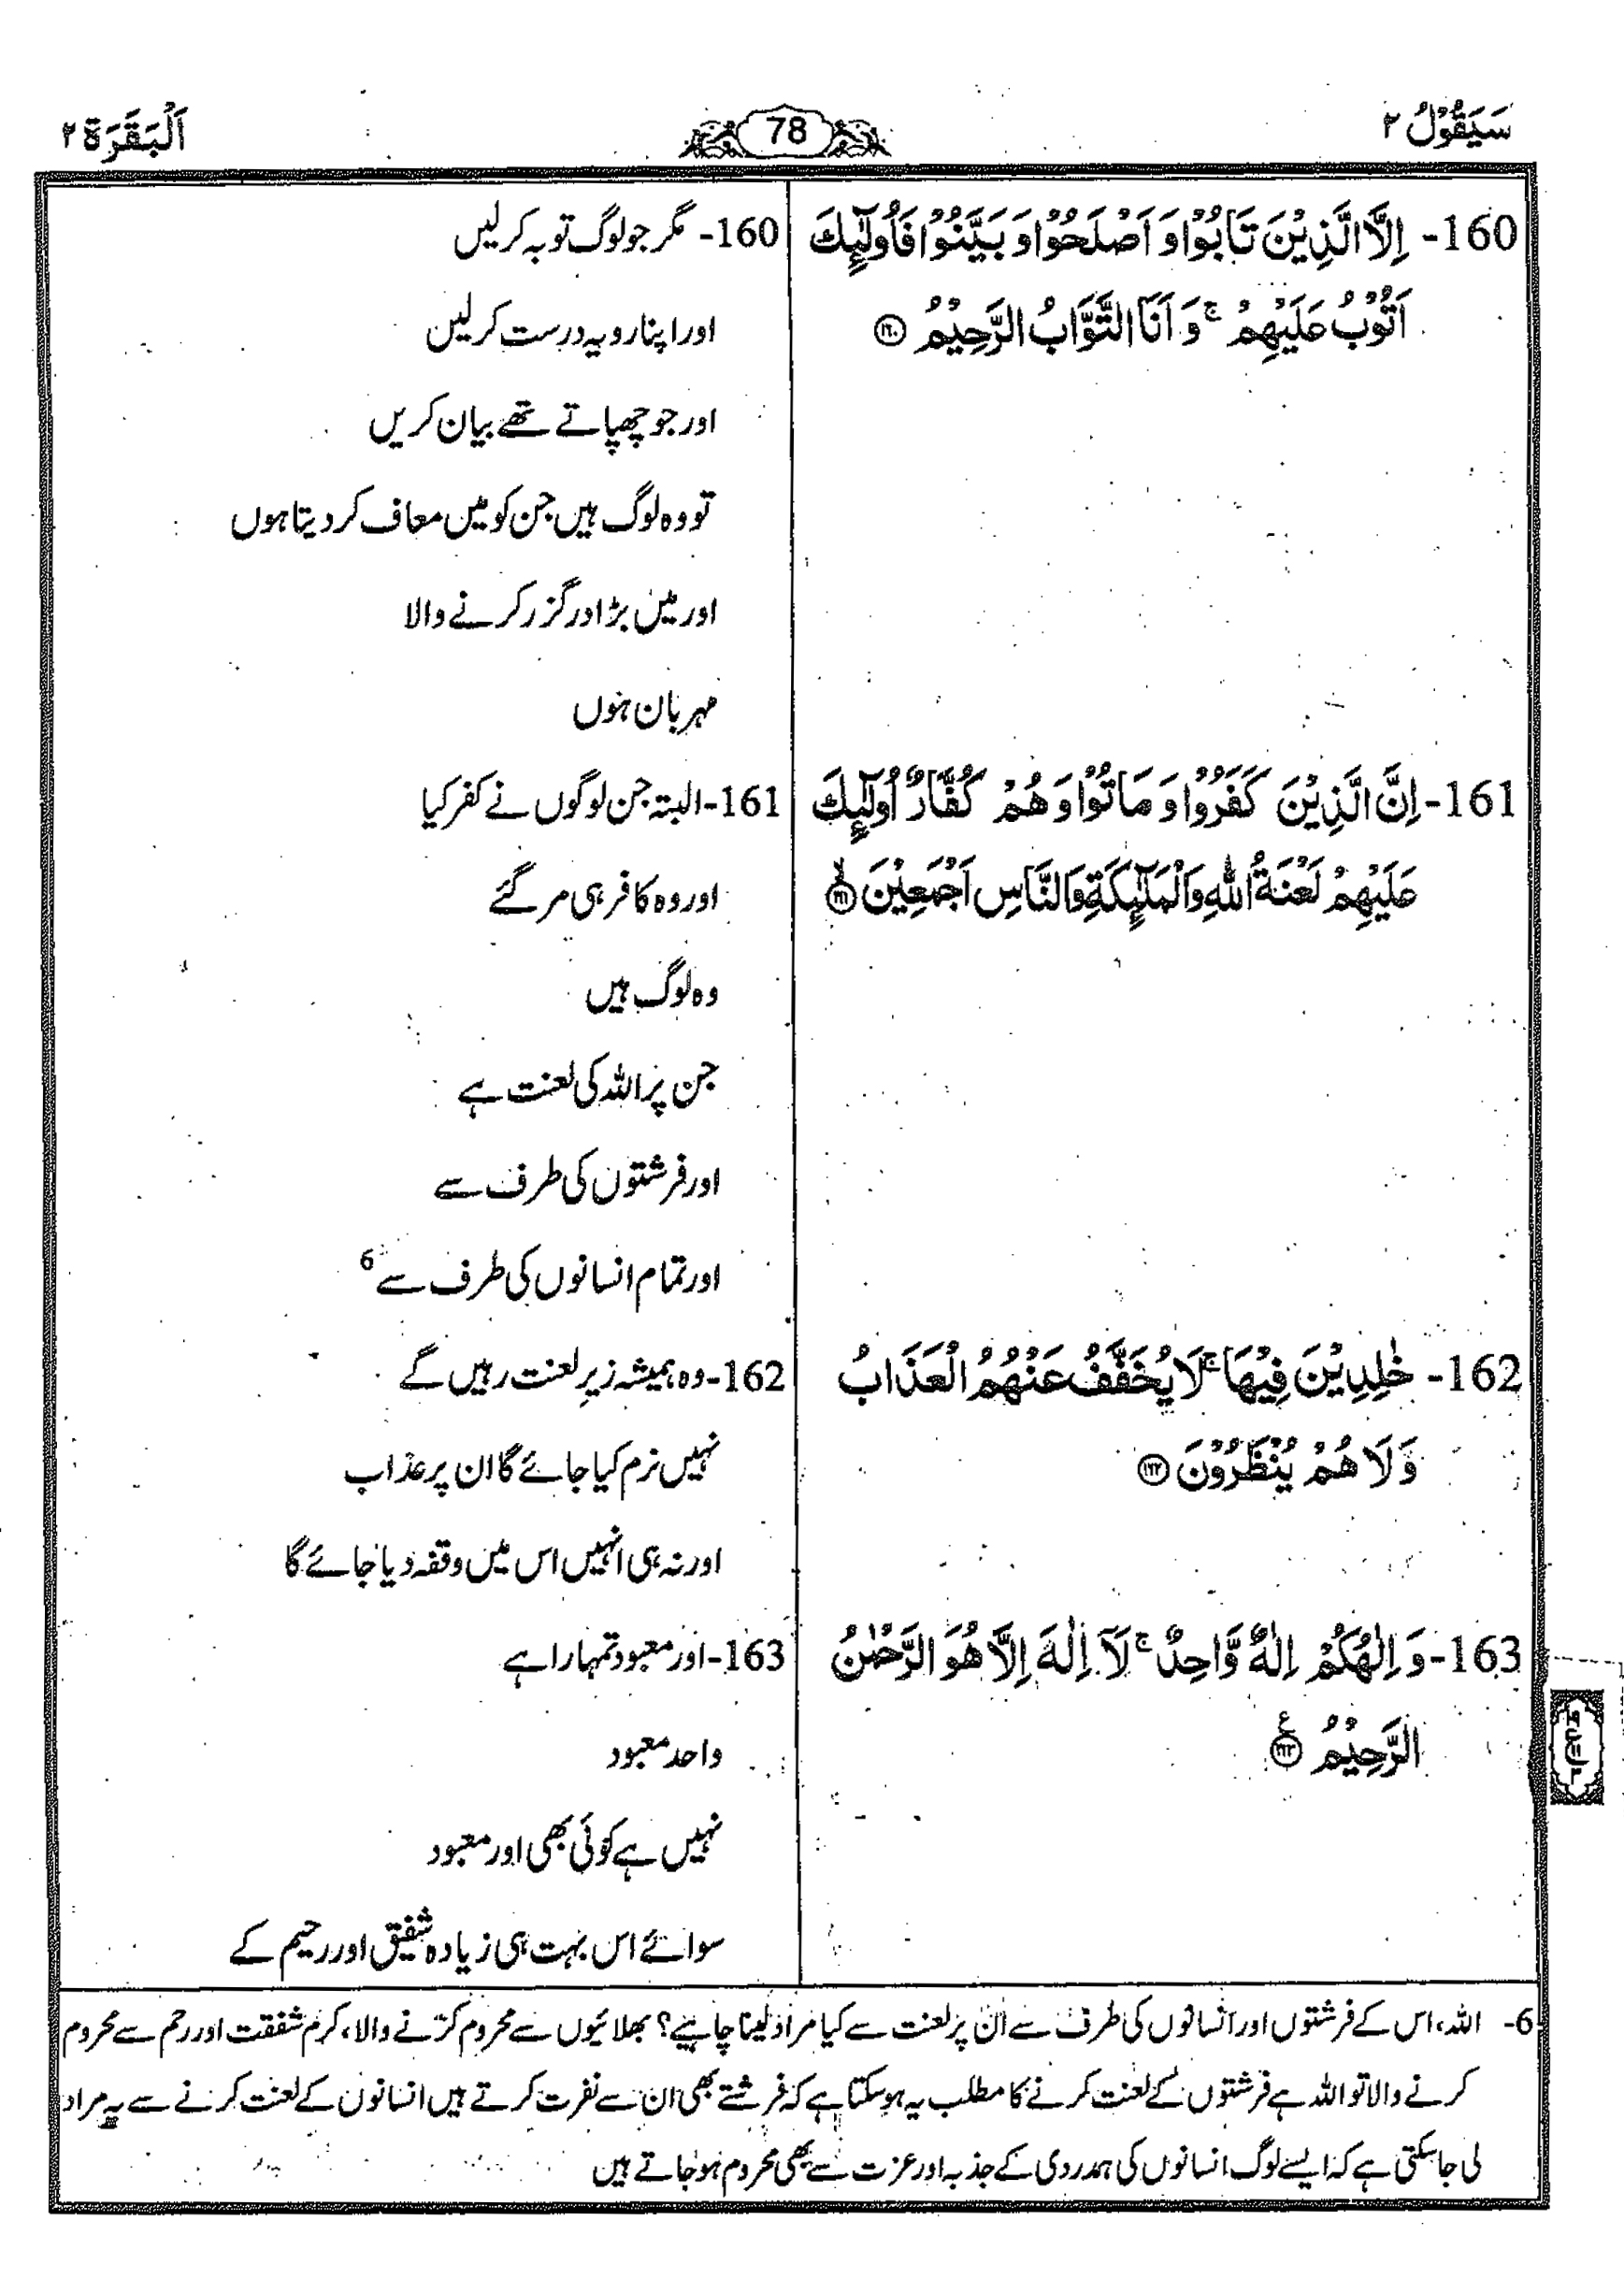 سَيَقُوْلُ ٢
78
اَلْبَقَرَة ٢
160- اِلَّا الَّذِيْنَ تَابُوْا وَ اَصْلَحُوْا وَ بَيَّنُوْا فَاُولٰٓئِكَ
اَتُوْبُ عَلَيْهِمْ ۚ وَ اَنَا التَّوَّابُ الرَّحِيْمُ ﴿١٦٠﴾
161- اِنَّ الَّذِيْنَ كَفَرُوْا وَ مَاتُوْا وَ هُمْ كُفَّارٌ اُولٰٓئِكَ
عَلَيْهِمْ لَعْنَةُ اللّٰهِ وَالْمَلٰٓئِكَةِ وَالنَّاسِ اَجْمَعِيْنَ ﴿١٦١﴾ۙ
162- خٰلِدِيْنَ فِيْهَا ۚ لَا يُخَفَّفُ عَنْهُمُ الْعَذَابُ
وَ لَا هُمْ يُنْظَرُوْنَ ﴿١٦٢﴾
163- وَ اِلٰهُكُمْ اِلٰهٌ وَّاحِدٌ ۚ لَآ اِلٰهَ اِلَّا هُوَ الرَّحْمٰنُ
الرَّحِيْمُ ﴿١٦٣﴾ ع
160- مگر جو لوگ توبہ کر لیں
اور اپنا رویہ درست کر لیں
اور جو چھپاتے تھے بیان کریں
تو وہ لوگ ہیں جن کو میں معاف کر دیتا ہوں
اور میں بڑا درگزر کرنے والا
مہربان ہوں
161- البتہ جن لوگوں نے کفر کیا
اور وہ کافر ہی مر گئے
وہ لوگ ہیں
جن پر اللہ کی لعنت ہے
اور فرشتوں کی طرف سے
اور تمام انسانوں کی طرف سے 6
162- وہ ہمیشہ زیرِ لعنت رہیں گے
نہیں نرم کیا جائے گا ان پر عذاب
اور نہ ہی انہیں اس میں وقفہ دیا جائے گا
163- اور معبود تمہارا ہے
واحد معبود
نہیں ہے کوئی بھی اور معبود
سوائے اس بہت ہی زیادہ شفیق اور رحیم کے
6- اللہ، اس کے فرشتوں اور انسانوں کی طرف سے ان پر لعنت سے کیا مراد لینا چاہیے؟ بھلائیوں سے محروم کرنے والا، کرم شفقت اور رحم سے محروم
کرنے والا تو اللہ ہے فرشتوں کے لعنت کرنے کا مطلب یہ ہو سکتا ہے کہ فرشتے بھی ان سے نفرت کرتے ہیں انسانوں کے لعنت کرنے سے یہ مراد
لی جا سکتی ہے کہ ایسے لوگ انسانوں کی ہمدردی کے جذبہ اور عزت سے بھی محروم ہو جاتے ہیں